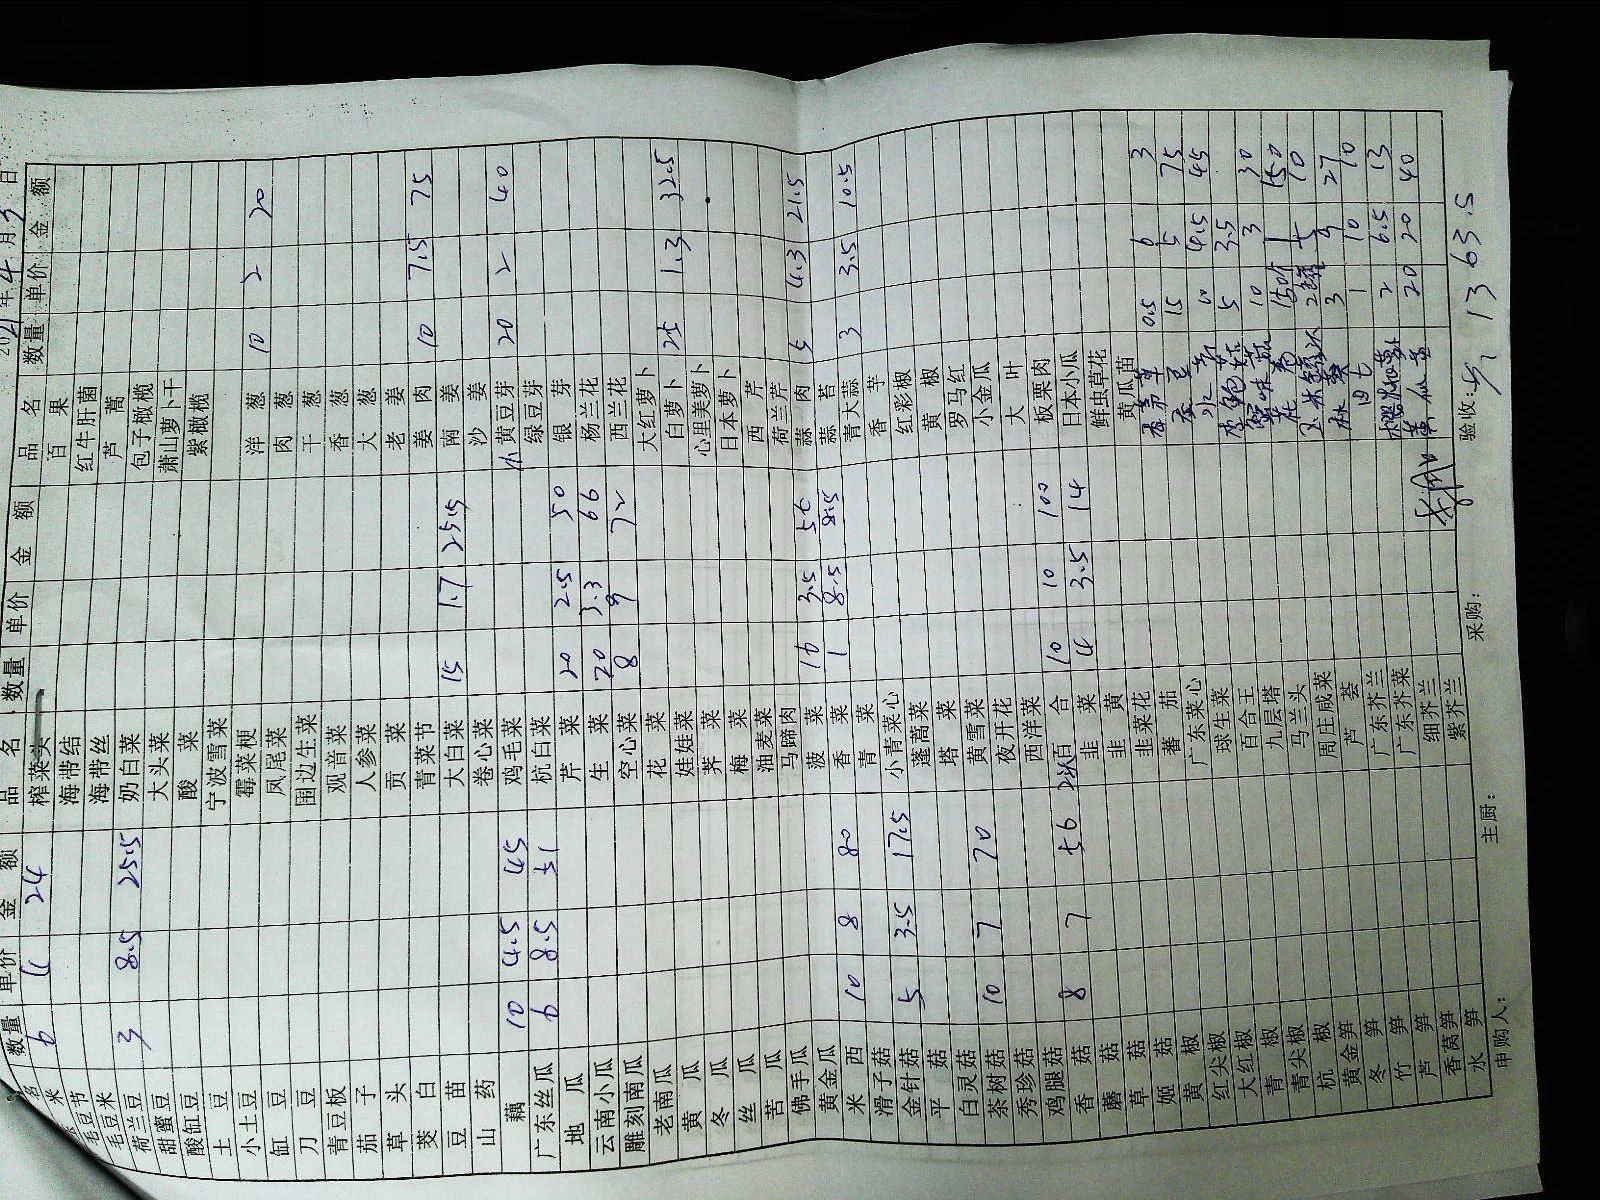 2021年4月3日
品名 数量 单价 金额
米 6 4 24
毛豆节
毛豆米
荷兰豆 3 8.5 25.5
甜蜜豆
酸缸豆
土豆
小土豆
缸豆
刀豆
青豆板
茄子
草头
茭白
豆苗
山药
藕 10 4.5 45
广东丝瓜 6 8.5 51
地瓜
云南小瓜
雕刻南瓜
老南瓜
黄瓜
冬瓜
丝瓜
苦瓜
佛手瓜
黄金瓜
米西 10 8 80
滑子菇
金针菇 5 3.5 17.5
平菇
白灵菇
茶树菇 10 7 70
秀珍菇
鸡腿菇
香菇 8 7 56
蘑菇
草菇
姬菇
黄椒
红尖椒
大红椒
青椒
青尖椒
杭椒
黄金笋
冬笋
竹笋
芦笋
香莴笋
水笋
品名 数量 单价 金额
榨菜头
海带结
海带丝
奶白菜
大头菜
酸菜
宁波雪菜
霉菜梗
凤尾菜
围边生菜
观音菜
人参菜
贡菜
青菜节
大白菜 15 1.7 25.5
卷心菜
鸡毛菜
杭白菜
芹菜 20 2.5 50
生菜 20 3.3 66
空心菜 8 9 72
花菜
娃娃菜
荠菜
梅菜
油麦菜
马蹄肉
菠菜 16 3.5 56
香菜 1 8.5 8.5
青菜
小青菜心
蓬蒿菜
塔菜
黄雪菜
夜开花
西洋菜
百合 10 10 100
韭菜 4 3.5 14
韭黄
韭菜花
番茄
广东菜心
球生菜
百合王
九层塔
马兰头
周庄咸菜
芦荟
广东芥兰
广东芥菜
细芥兰
紫芥兰
品名 数量 单价 金额
百果
红牛肝菌
芦蒿
包子橄榄
萧山萝卜干
紫橄榄
洋葱 10 2 20
肉葱
干葱
香葱
大葱
老姜
姜肉 10 7.5 75
南姜
沙姜
小黄豆芽 20 2 40
绿豆芽
银芽
杨兰花
西兰花
大红萝卜
白萝卜 25 1.3 32.5
心里美萝卜
日本萝卜
西芹
荷兰芹
蒜肉 5 4.3 21.5
蒜苔
青大蒜 3 3.5 10.5
香芋
红彩椒
黄椒
罗马红
小金瓜
大叶
板栗肉
日本小瓜
鲜虫草花
黄瓜苗
香茅草 0.5 6 3
15 5 75
10 4.5 45
5 3.5
10 3 30
150个 1 150
2 5 10
3 9 27
1 10 10
2 6.5 13
20 20 40
申购人: 主厨: 采购: 验收: 1363.5